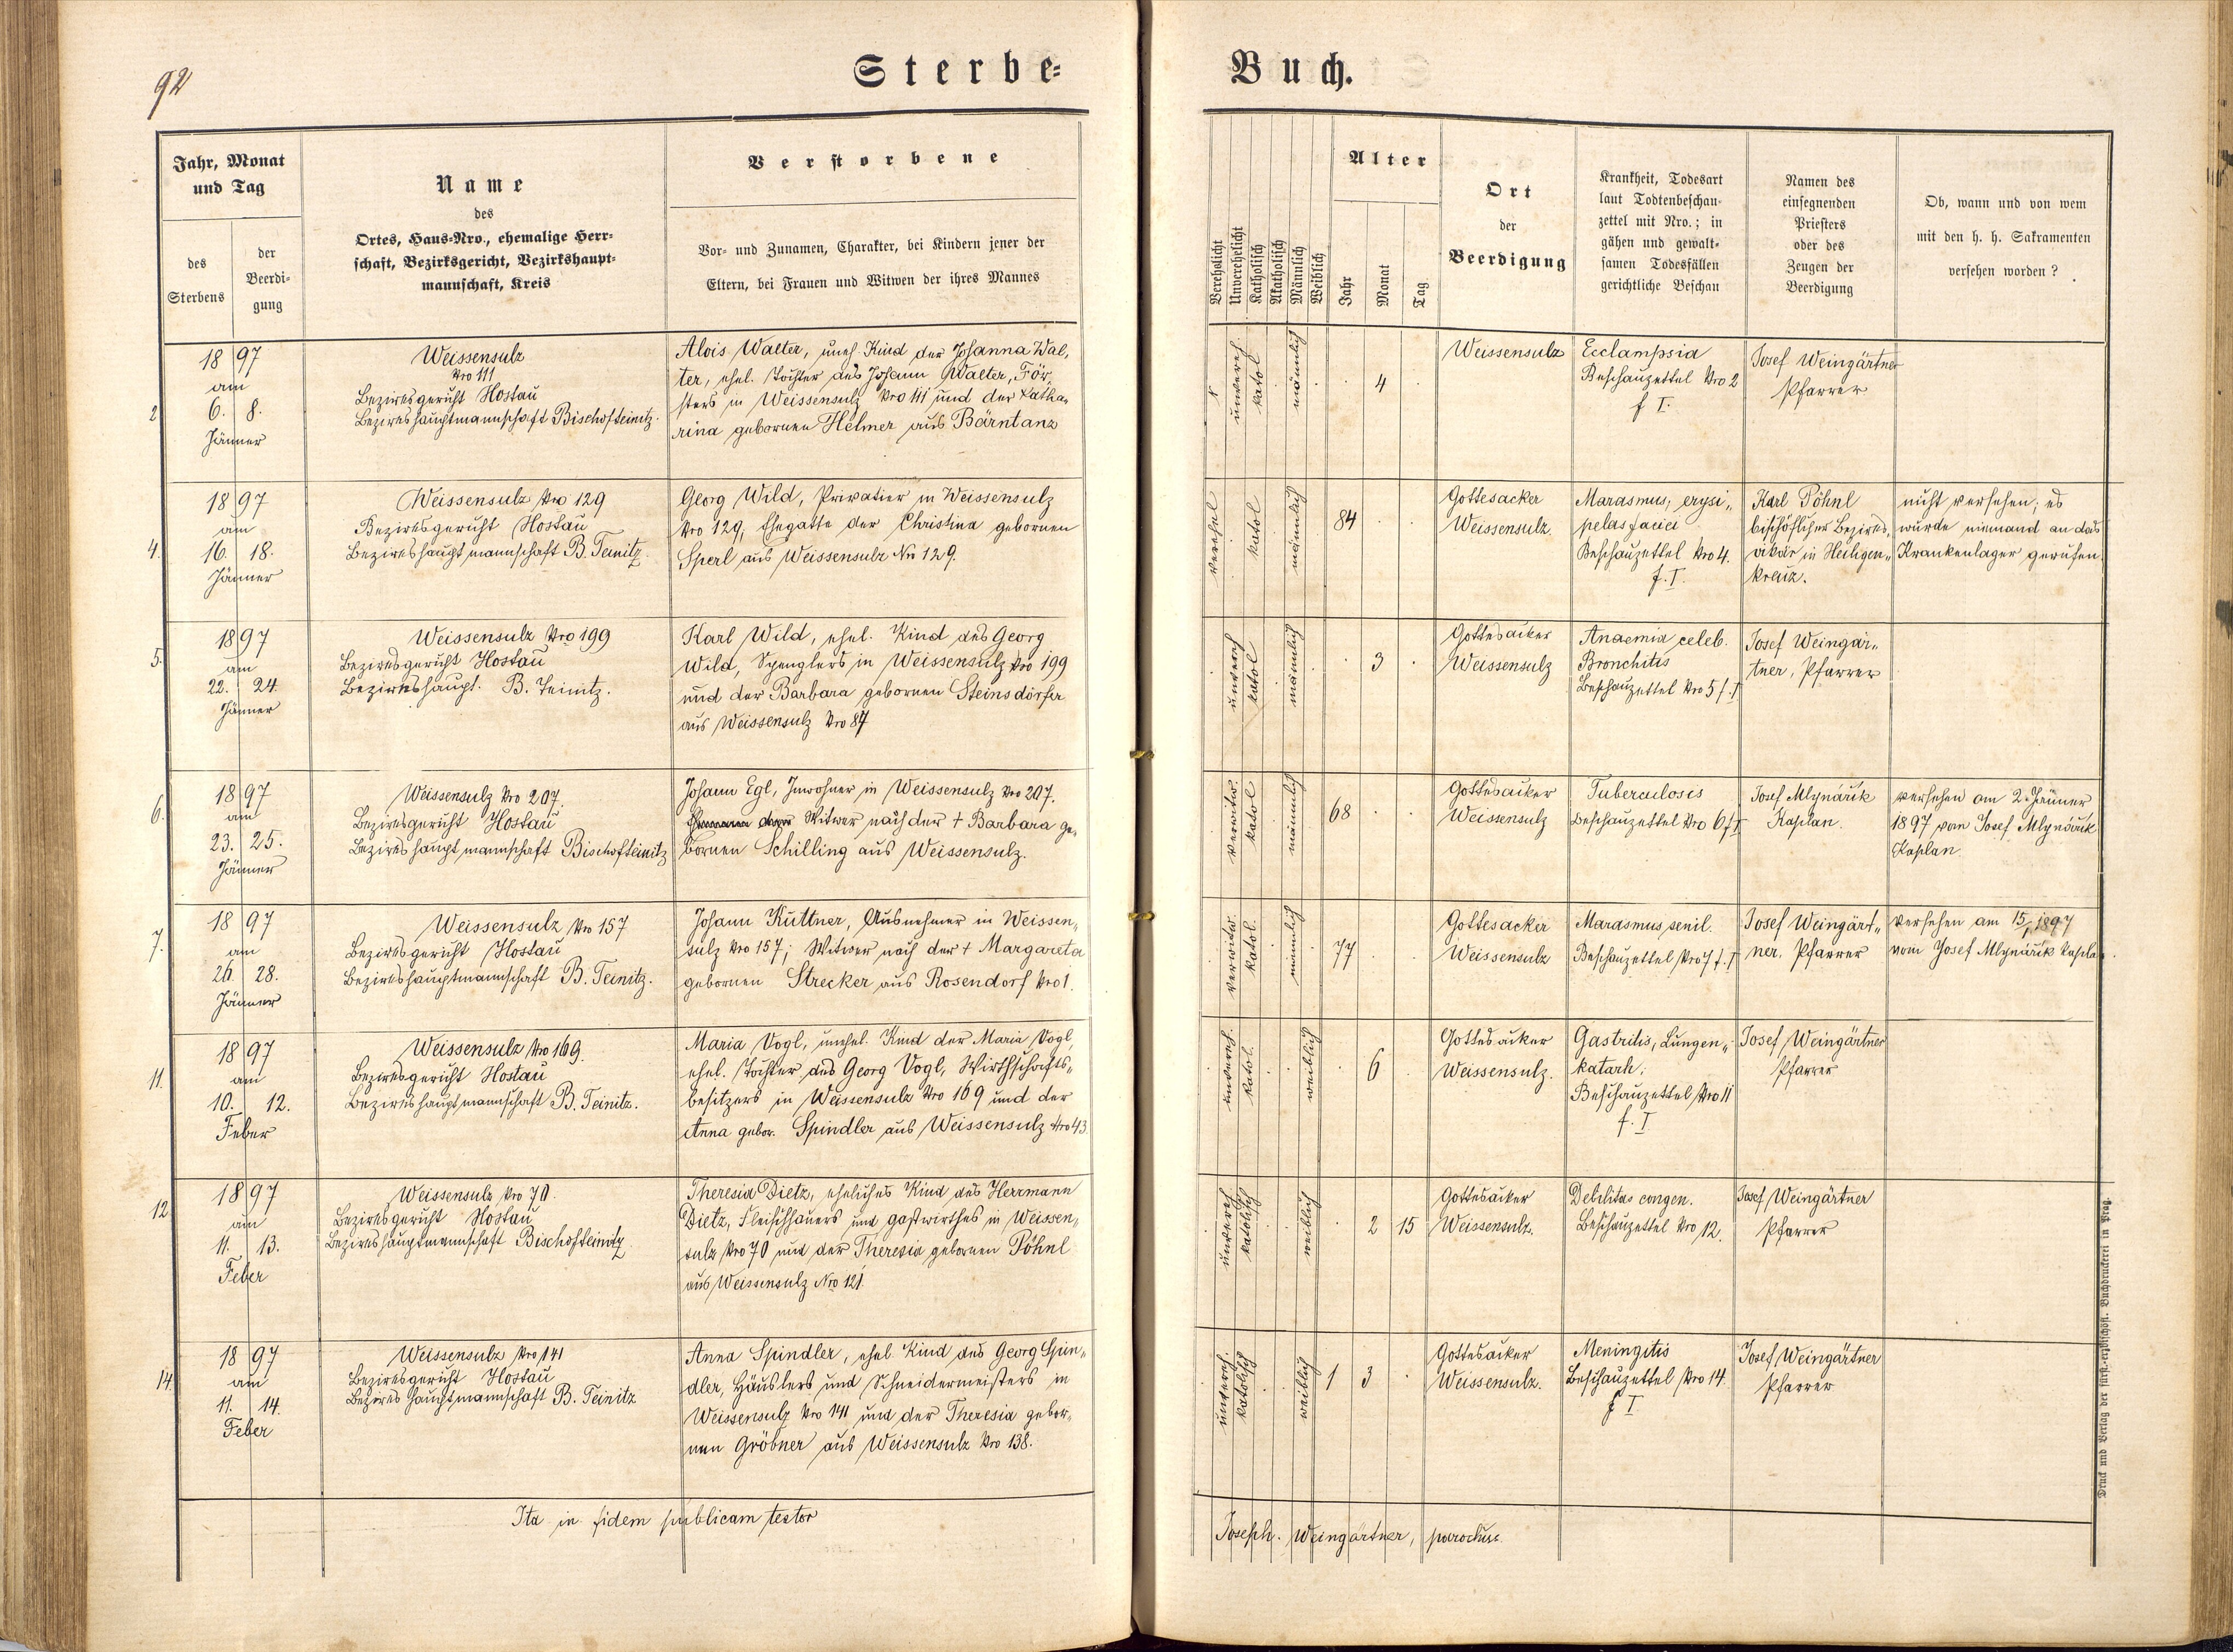 92
Sterbe-
Buch.
Jahr, Monat
und Tag
des
Sterbens
der
Beerdi-
gung
Name
des
Ortes, Haus-Nro., ehemalige Herr-
schaft, Bezirksgericht, Bezirkshaupt-
mannschaft, Kreis
Verstorbene
Vor- und Zunamen, Charakter, bei Kindern jener der
Eltern, bei Frauen und Witwen der ihres Mannes
Verehelicht
Unverehelicht
Katholisch
Akatholisch
Männlich
Weiblich
Alter
Jahr
Monat
Tag
Ort
der
Beerdigung
Krankheit, Todesart
laut Todtenbeschau-
zettel mit Nro.; in
gähen und gewalt-
samen Todesfällen
gerichtliche Beschau
Namen des
einsegnenden
Priesters
oder des
Zeugen der
Beerdigung
Ob, wann und von wem
mit den h. h. Sakramenten
versehen worden?
2
1897
am
6. 8.
Jänner
Weissensulz
Nro 111
Bezirksgericht Hostau
Bezirkshauptmannschaft Bischofteinitz.
Alois Walter, uneh. Kind der Johanna Wal,
ter, ehel. Tochter des Johann Walter, För,
sters in Weissensulz Nro 111 und der Katha,
rina gebornen Helmer aus Bärntanz
unvereh.
katol
männlich
4
Weissensulz
Ecclampsia
Beschauzettel Nro 2
f I.
Josef Weingärtner
Pfarrer
4.
1897
am
16. 18.
Jänner
Weissensulz Nro 129
Bezirksgericht Hostau
Bezirkshauptmannschaft B. Teinitz.
Georg Wild, Privatier in Weissensulz
Nro 129, Ehegatte der Christina gebornen
Sperl aus Weissensulz Nro 129.
verehel
katol
männlich
84
Gottesacker
Weissensulz.
Marasmus, erysi„
pelas faciei
Beschauzettel Nro 4.
f. I.
Karl Pöhnl
bischöflicher Bezirks„
vikär in Heiligen„
kreuz.
nicht versehen; es
wurde niemand an das
Krankenlager gerufen.
5.
1897
am
22. 24.
Jänner
Weissensulz Nro 199
Bezirksgericht Hostau
Bezirkshaupt. B. Teinitz.
Karl Wild, ehel. Kind des Georg
Wild, Spenglers in Weissensulz Nro 199
und der Barbara gebornen Steinsdörfer
aus Weissensulz Nro 87
unvereh
katol
männlich
3
Gottesacker
Weissensulz
Anaemia celeb.
Bronchitis
Beschauzettel Nro 5 f. I
Josef Weingär„
tner, Pfarrer
6.
1897
am
23. 25.
Jänner
Weissensulz Nro 207.
Bezirksgericht Hostau
Bezirkshauptmannschaft Bischofteinitz
Johann Egl, Inwohner in Weissensulz Nro 207.
Witwer nach der † Barbara ge„
bornen Schilling aus Weissensulz.
verwitw.
katol
männlich
68
Gottesacker
Weissensulz
Tuberculosis
Beschauzettel Nro 6 f I
Josef Mlynářik
Kaplan.
versehen am 2. Jänner
1897 vom Josef Mlynářik
Kaplan.
7.
1897
am
26. 28.
Jänner
Weissensulz Nro 157
Bezirksgericht Hostau
Bezirkshauptmannschaft B. Teinitz.
Johann Kuttner, Ausnehmer in Weissen„
sulz Nro 157; Witwer nach der † Margareta
gebornen Strecker aus Rosendorf Nro 1.
verwitw.
katol.
männlich
77
Gottesacker
Weissensulz
Marasmus senil.
Beschauzettel Nro 7 f. I
Josef Weingärt„
ner, Pfarrer
versehen am 15/1 1897
vom Josef Mlynářik Kapla
11.
1897
am
10. 12.
Feber
Weissensulz Nro 169.
Bezirksgericht Hostau
Bezirkshauptmannschaft B. Teinitz.
Maria Vogl, unehel. Kind der Maria Vogl,
ehel. Tochter des Georg Vogl, Wirthschafts„
besitzers in Weissensulz Nro 169 und der
Anna gebor. Spindler aus Weissensulz Nro 43.
unvereh.
katol.
weiblich
6
Gottesacker
Weissensulz.
Gastritis, Lungen„
katarh.
Beschauzettel Nro 11
f. I
Josef Weingärtner
Pfarrer
12.
1897
am
11. 13.
Feber
Weissensulz Nro 70.
Bezirksgericht Hostau
Bezirkshauptmannschaft Bischofteinitz
Theresia Dietz, eheliches Kind des Herrmann
Dietz, Fleischhauers und Gastwirthes in Weissen„
sulz Nro 70 und der Theresia gebornen Pöhnl
aus Weissensulz Nro 121.
unvereh
katolisch
weiblich
2 15
Gottesacker
Weissensulz.
Debilitas congen.
Beschauzettel Nro 12.
Josef Weingärtner
Pfarrer
14.
1897
am
11. 14.
Feber
Weissensulz Nro 141
Bezirksgericht Hostau
Bezirkshauptmannschaft B. Teinitz
Anna Spindler, ehel. Kind des Georg Spin„
dler, Häuslers und Schneidermeisters in
Weissensulz Nro 141 und der Theresia gebor„
nen Gröbner aus Weissensulz Nro 138.
unvereh.
katolisch
weiblich
1 3
Gottesacker
Weissensulz.
Meningitis
Beschauzettel Nro 14.
f I
Josef Weingärtner
Pfarrer
Ita in fidem publicam testor
Joseph. Weingärtner, parochus.
Druck und Verlag der fürst.-erzbischöfl. Buchdruckerei in Prag.